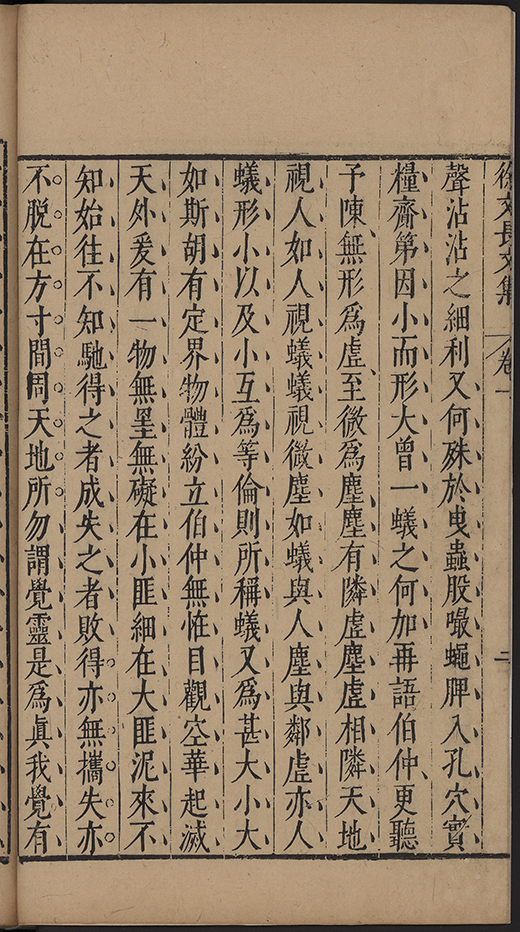 徐文長文集 卷一 二
聲沾沾之細利又何殊於曳蟲股嘬蠅胛入孔穴實
糧齋第因小而形大曾一蟻之何加再語伯仲更聽
予陳無形爲虛至微爲塵塵有隣虛塵虛相隣天地
視人如人視蟻蟻視微塵如蟻與人塵與鄰虛亦人
蟻形小以及小互爲等倫則所稱蟻又爲甚大小大
如斯胡有定界物體紛立伯仲無怪目觀空華起滅
天外爰有一物無罣無礙在小匪細在大匪泥來不
知始往不知馳得之者成失之者敗得亦無攜失亦
不脱在方寸間周天地所勿謂覺靈是爲眞我覺有